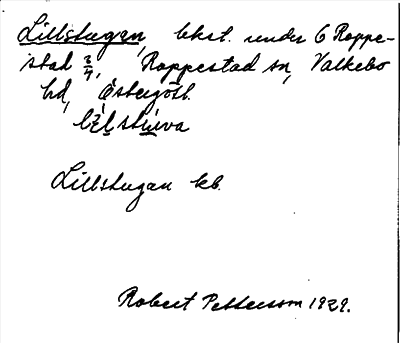 Lillstugan, bkst. under 6 Rappe-
stad 3/4, Rappestad sn, Valkebo
hd, Östergötl.
Lillstugan kb.
Robert Pettersson 1929.